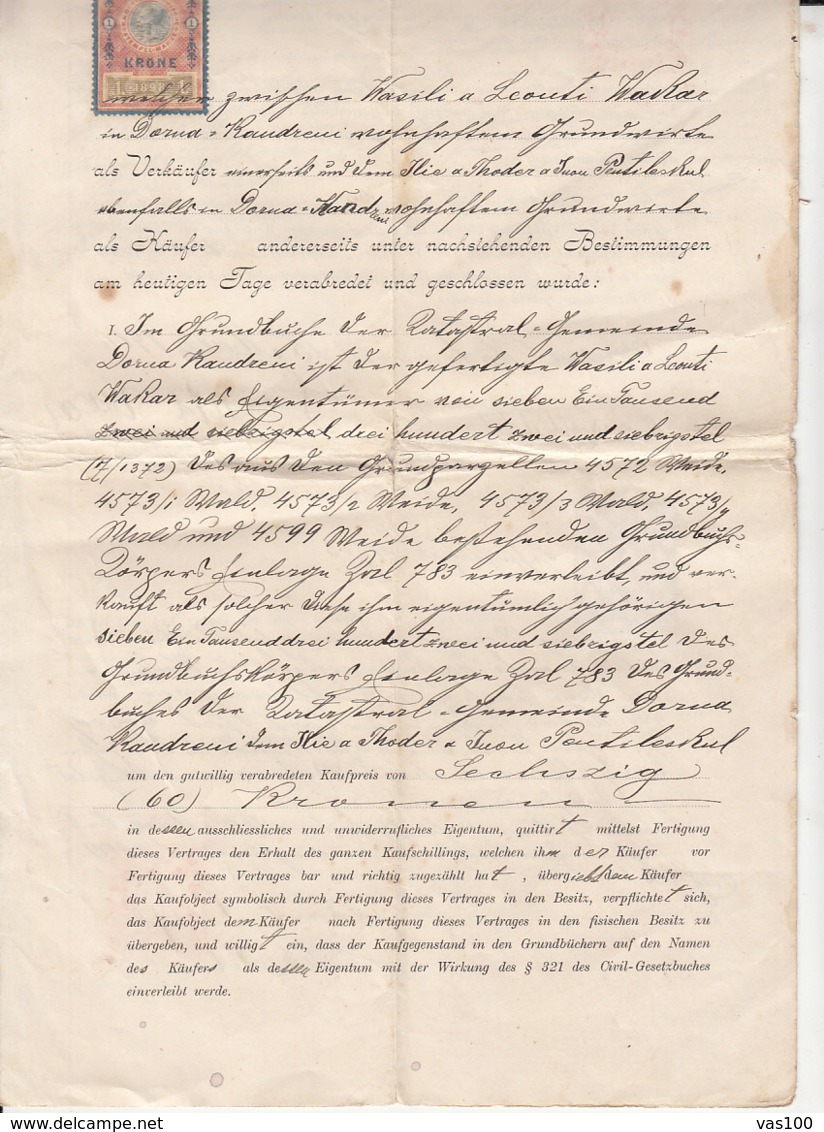 1 1
KRONE
1 1898 1
welcher zwischen Wasili a Leonti Wakar
in Dorna-Kandreni wohnhaftem Grundwirte
als Verkäufer einerseits und dem Ilie a Thoder a Iuon Pentileskul
ebenfalls in Dorna-Kandreni wohnhaftem Grundwirte
als Käufer andererseits unter nachstehenden Bestimmungen
am heutigen Tage verabredet und geschlossen wurde:
I. Im Grundbuche der Katastral-Gemeinde
Dorna Kandreni ist der gefertigte Wasili a Leonti
Wakar als Eigentümer von sieben Ein Tausend
zwei und siebzigstel drei hundert zwei und siebzigstel
(7/1372) des aus den Grundparzellen 4572 Weide,
4573/1 Wald, 4573/2 Weide, 4573/3 Wald, 4573/4
Wald und 4599 Weide bestehenden Grundbuchs-
Körpers Einlage Zal 783 einverleibt, und ver-
kauft als solcher diese ihm eigentümlich gehörigen
sieben Ein Tausend drei hundert zwei und siebzigstel des
Grundbuchskörpers Einlage Zal 783 des Grund-
buches der Katastral-Gemeinde Dorna
Kandreni dem Ilie a Thoder a Iuon Pentileskul
um den gutwillig verabredeten Kaufpreis von Sechszig
(60) Kronen
in dessen ausschliessliches und unwiderrufliches Eigentum, quittirt mittelst Fertigung
dieses Vertrages den Erhalt des ganzen Kaufschillings, welchen ihm der Käufer vor
Fertigung dieses Vertrages bar und richtig zugezählt hat, übergiebt dem Käufer
das Kaufobject symbolisch durch Fertigung dieses Vertrages in den Besitz, verpflichtet sich,
das Kaufobject dem Käufer nach Fertigung dieses Vertrages in den fisischen Besitz zu
übergeben, und willigt ein, dass der Kaufgegenstand in den Grundbüchern auf den Namen
des Käufers als dessen Eigentum mit der Wirkung des § 321 des Civil-Gesetzbuches
einverleibt werde.
vas100